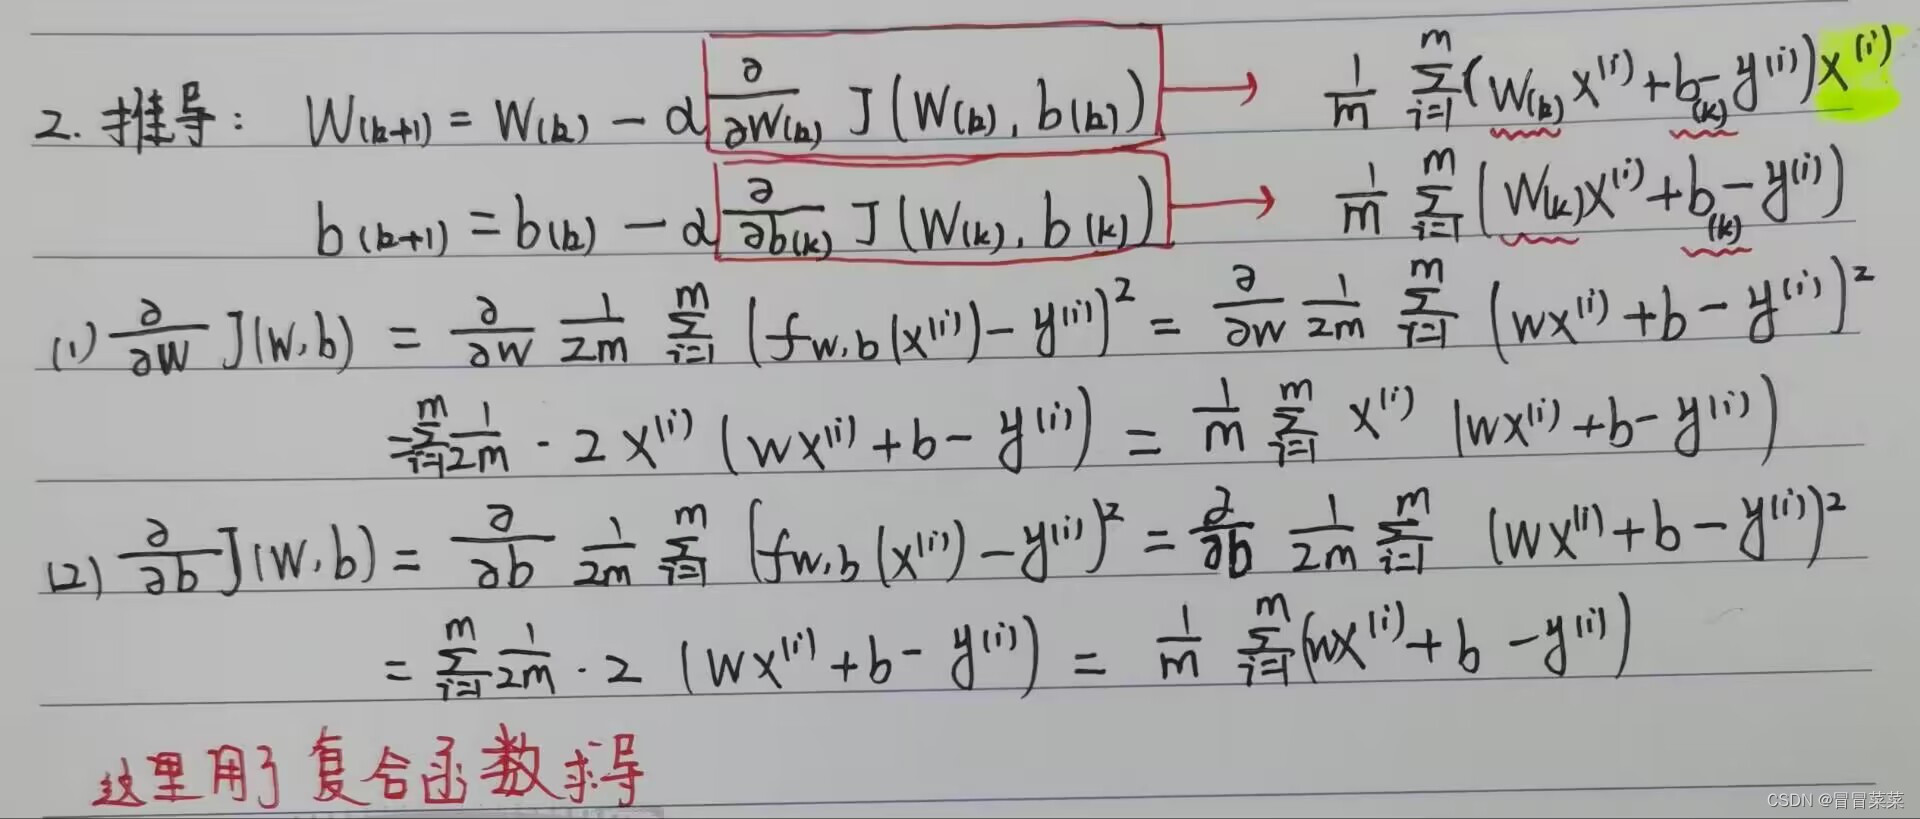 2. 推导: W(k+1) = W(k) − α ∂/∂W(k) J(W(k), b(k)) → 1/m Σ_{i=1}^{m} (W(k) x^(i) + b(k) − y^(i)) x^(i)
b(k+1) = b(k) − α ∂/∂b(k) J(W(k), b(k)) → 1/m Σ_{i=1}^{m} (W(k) x^(i) + b(k) − y^(i))
(1) ∂/∂W J(W,b) = ∂/∂W 1/2m Σ_{i=1}^{m} (f_{w,b}(x^(i)) − y^(i))² = ∂/∂W 1/2m Σ_{i=1}^{m} (wx^(i) + b − y^(i))²
= Σ_{i=1}^{m} 1/2m · 2 x^(i) (wx^(i) + b − y^(i)) = 1/m Σ_{i=1}^{m} x^(i) (wx^(i) + b − y^(i))
(2) ∂/∂b J(W,b) = ∂/∂b 1/2m Σ_{i=1}^{m} (f_{w,b}(x^(i)) − y^(i))² = ∂/∂b 1/2m Σ_{i=1}^{m} (wx^(i) + b − y^(i))²
= Σ_{i=1}^{m} 1/2m · 2 (wx^(i) + b − y^(i)) = 1/m Σ_{i=1}^{m} (wx^(i) + b − y^(i))
这里用了复合函数求导
CSDN @冒冒菜菜